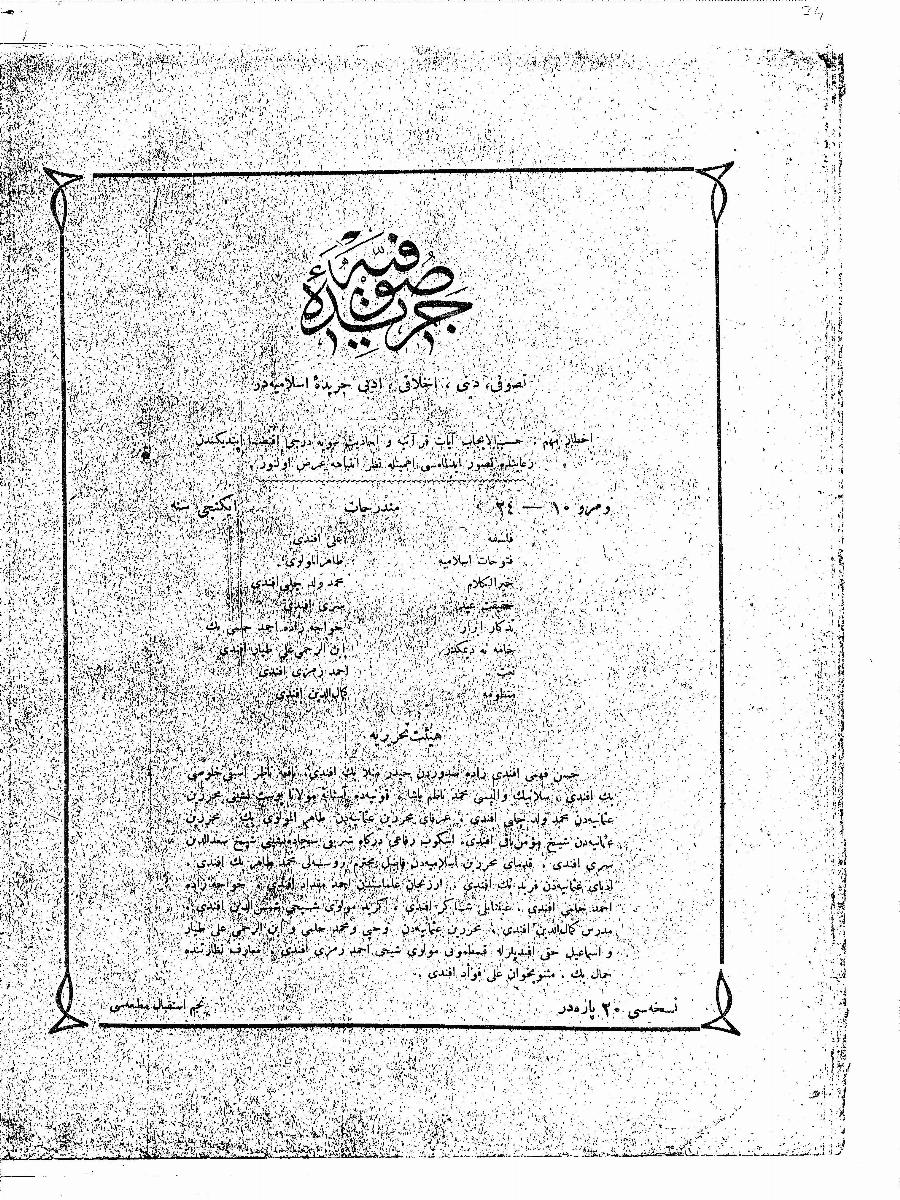 34
جريدهٔ صوفيّه
تصوفی، دینی، اخلاقی، ادبی جریدهٔ اسلامیه‌در
اخطار مهم : حسب‌الایجاب آیات قرآنیه و احادیث نبویه درجی اقتضا ایتدیکندن
رعایتده قصور ایدلمامسی اهمیتله نظر انتباهه عرض اولنور.
ومرو ١٠ — ٢٤ مندرجات ایکنجی سنه
فلسفه علی افندی
فتوحات اسلامیه طاهرالمولوی
خیرالکلام محمد ولد چلبی افندی
حقیقت سری افندی
تذکار ابرار خواجه زاده احمد حلمی بك
خامه نه دیمکدر ابن الرحمی علی طیار افندی
نعت احمد رمزی افندی
منظومه کمال‌الدین افندی
هیئت تحریریه
حسن فهمی افندی زاده صدوردن حیدر ملا بك افندی، نافعه ناظر
بك افندی ، سلانیك والیسی محمد ناظم پاشا ، قونیه‌ده آستانهٔ مولانا پوست نشینی محررین
عثمانیه‌دن محمد ولد چلبی افندی ، عرفای محررین عثمانیه‌دن طاهر المولوی بك ، محررین
عثمانیه‌دن شیخ مؤمن افندی، اسکوب رفاعی درکاه شریفی سجاده‌نشینی شیخ سعدالدین
سری افندی ، قدمای محررین اسلامیه‌دن فاضل محترم بروسه‌لی محمد طاهر بك افندی ،
ادبای عثمانیه‌دن فرید بك افندی ، ارزنجان علماسندن احمد مقداد افندی ، خواجه‌زاده
احمد حلمی افندی ، عینتابلی شاکر افندی ، کرید مولوی شیخی شمس الدین افندی ،
مدرس کمال‌الدین افندی ، محررین عثمانیه‌دن وحی ومحمد حلمی و ابن الرحمی علی طیار
و اسماعیل حقی افندیلرله قسطمونی مولوی شیخی احمد رمزی افندی ، معارف نظارتنده
جمال بك ، مثنویخوان علی فؤاد افندی .
نسخه‌سی ٢٠ پاره‌در نجم استقبال مطبعه‌سی